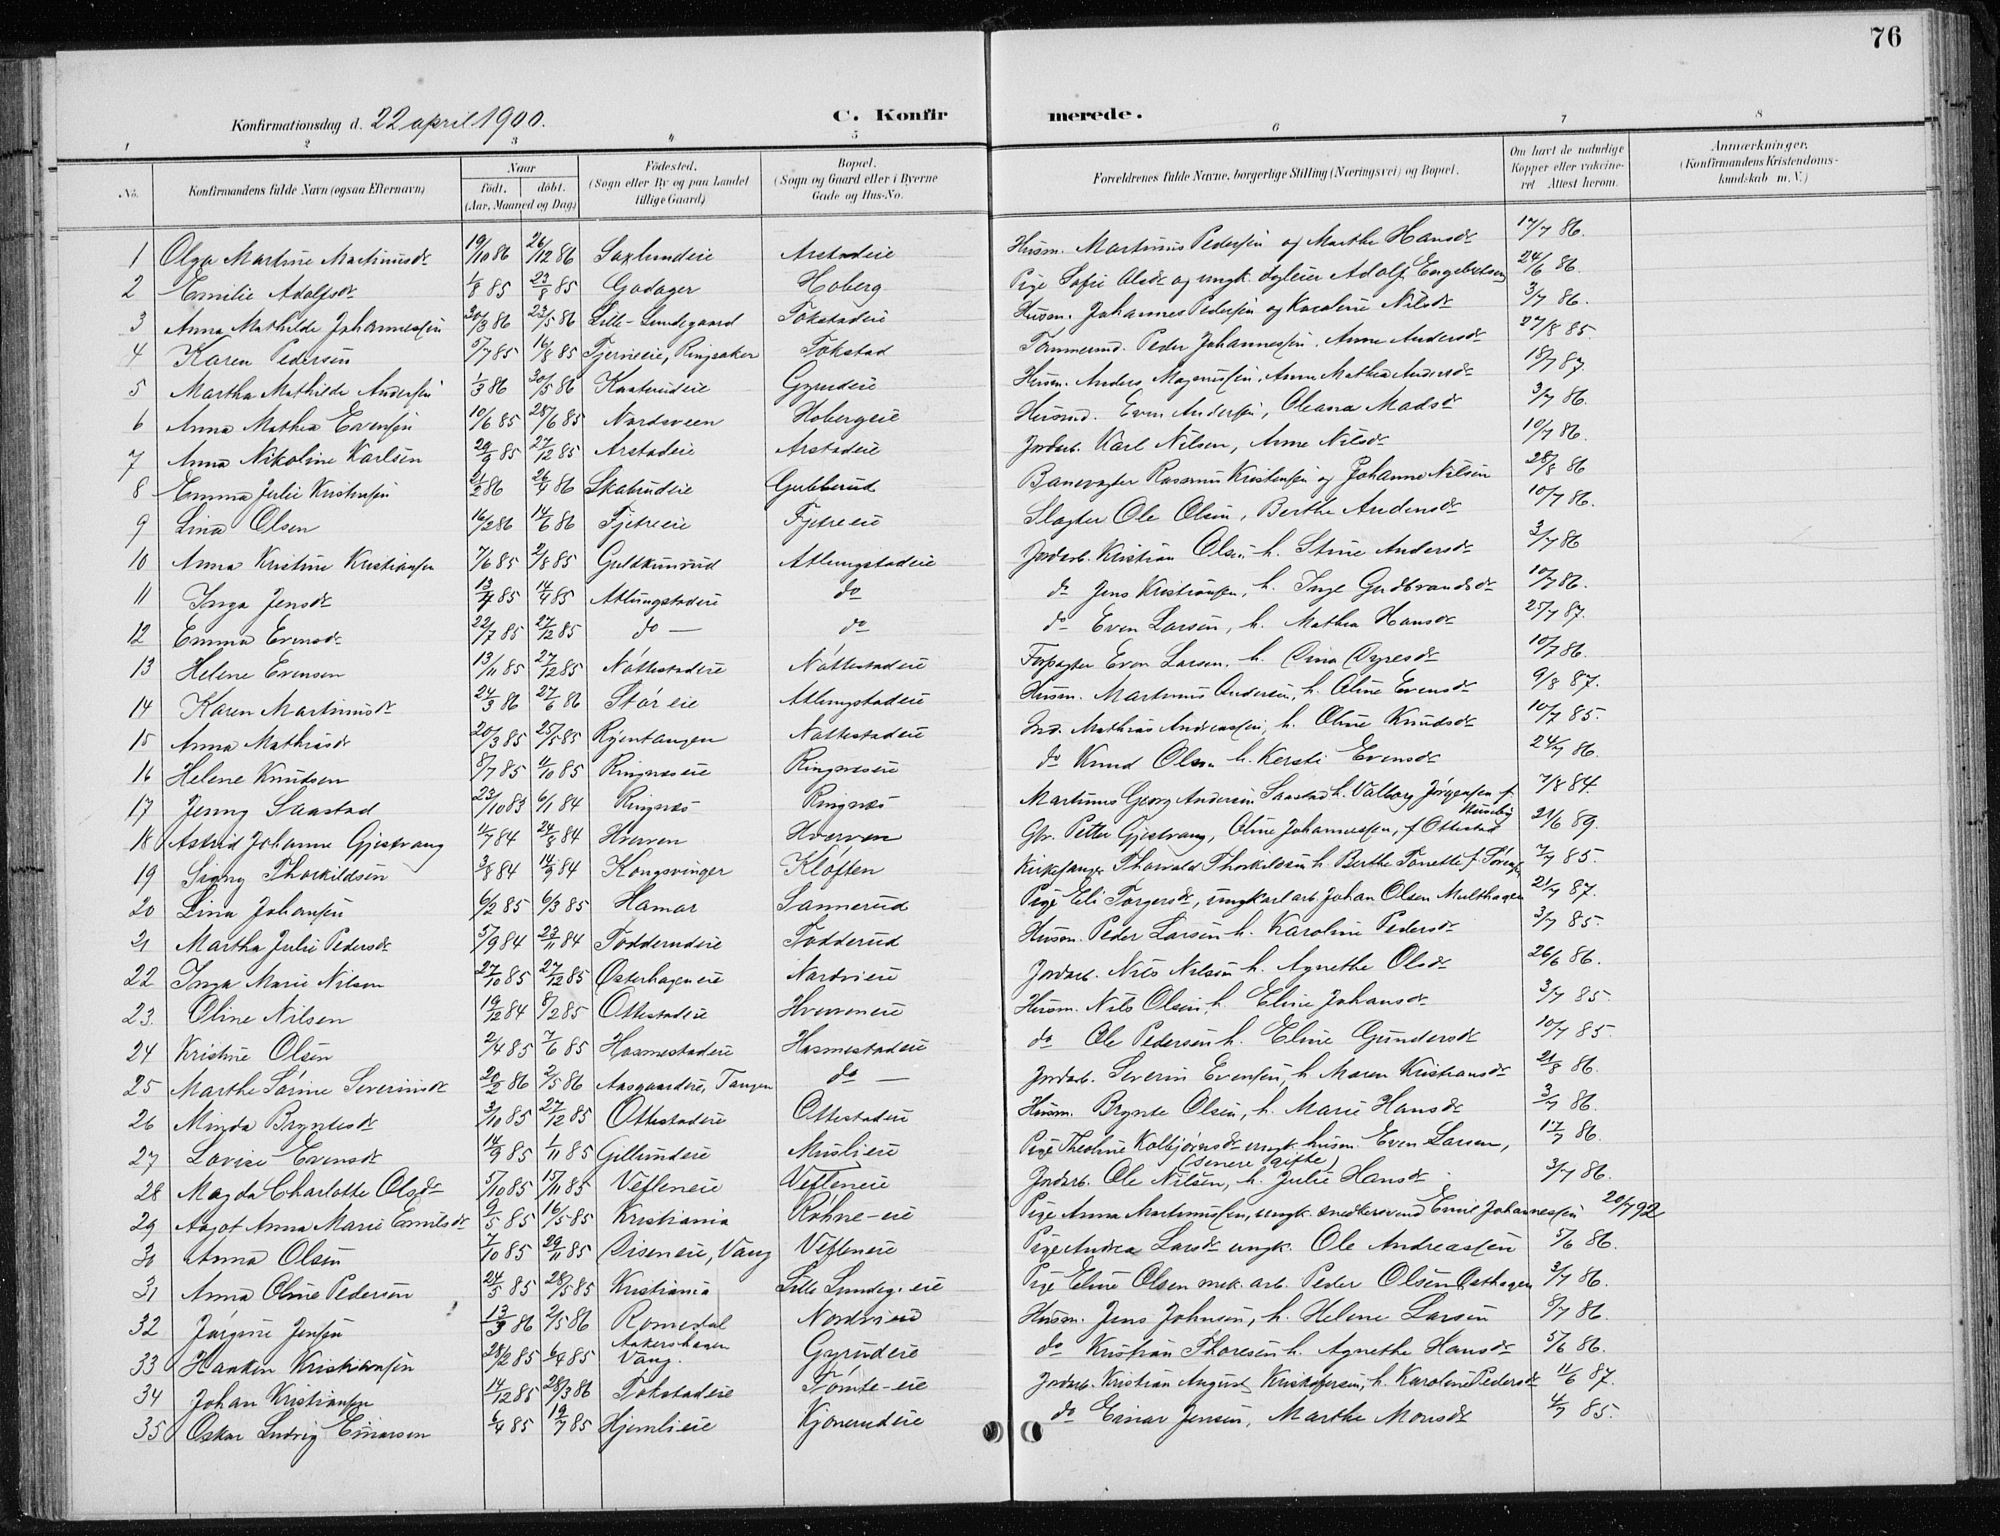 76
Konfirmationsdag d. 22 april 1900. C. Konfirmerede.
1 2 3 4 5 6 7 8
No. Konfirmandens fulde Navn (ogsaa Efternavn) Naar født. døbt. (Aar, Maaned og Dag) Fødested. (Sogn eller By og paa Landet tillige Gaard) Bopæl. (Sogn og Gaard eller i Byerne Gade og Hus-No. Forældrenes fulde Navne, borgerlige Stilling (Næringsvei) og Bopæl. Om havt de naturlige Kopper eller vakcineret Attest herom. Anmærkninger. (Konfirmandens Kristendomskundskab m. V.)
1 Olga Martine Martinusdr 19/10 86 26/12 86 Saxlundeie Arstadeie Husm. Martinus Pedersen og Marthe Hansdr 17/7 86.
2 Emilie Adolfsdr 1/8 85 23/8 85 Godager Hoberg Pige Sofie Olsdr og ungk. Adolf Engebretsen 24/6 86.
3 Anna Mathilde Johannessen 30/3 86 23/5 86 Lille-Lundegaard Tokstadeie Husm. Johannes Pedersen og Karoline Nilsdr 3/7 86.
4 Karen Pedersen 5/7 85 16/8 85 Tjerneeie, Ringsaker Tokstad Tømmermd. Peder Johannessen, Anne Andersdr 27/8 85.
5 Martha Mathilde Andersen 1/3 86 30/5 86 Kaaterudeie Gyrudeie Husm. Anders Magnussen, Anne Mathea Andersdr 18/7 87.
6 Anna Mathea Evensen 10/6 85 28/6 85 Nordsveen Hobergeie Husmd. Even Andersen, Oleana Madsdr 3/7 86.
7 Anna Nikoline Karlsen 29/9 85 27/12 85 Arstadeie Arstadeie Jordarb. Karl Nilsen, Anne Nilsdr 10/7 86.
8 Emma Julie Kristensen 2/2 86 26/4 86 Skabrudeie Gubberud Banevogter Rasmus Kristensen og Johanne Nilsen 28/8 86
9 Lina Olsen 16/2 86 14/6 86 Fjetreeie Fjetreeie Slagter Ole Olsen, Berthe Andersdr 10/7 86.
10 Anna Kristine Kristiansen 7/6 85 2/8 85 Guldkunrud Atlungstadeie Jordarb. Kristian Olsen h. Stine Andersdr 3/7 86
11 Inga Jensdr 13/4 85 14/4 85 Atlungstadeie do do Jens Kristiansen, h. Inge Gudbrandsdr 10/7 86.
12 Emma Evensdr 22/7 85 27/12 85 do — do do Even Larsen, h. Mathea Hansdr 25/7 87.
13 Helene Evensen 13/11 85 27/12 85 Nøttestadeie Nøttestadeie Forpagter Even Larsen, h. Dina Dyresdr 10/7 86.
14 Karen Martinusdr 24/3 86 27/6 86 Stør eie Atlungstadeie Husm. Martinus Andersen, h. Oline Evensdr 9/8 87.
15 Anna Mathiasdr 20/3 85 25/5 85 Ryentangen Nøttestadeie Ind. Mathias Andreassen, h. Oline Knudsdr 10/7 85.
16 Helene Knudsen 8/7 85 4/10 85 Ringneseie Ringneseie do Knud Olsen h. Kersti Evensdr 24/7 86.
17 Jenny Saastad 23/10 83 6/1 84 Ringnes Ringnes Martinus Georg Andersen Saastad h. Valborg Jørgensen f. Huseby 7/8 84
18 Astrid Johanne Gjestvang 4/7 84 24/8 84 Hverven Hverven Gbr. Petter Gjestvang, Oline Johannessen, f. Ottestad 21/6 89.
19 Signy Thorkildsen 3/8 84 14/9 84 Kongsvinger Kløften Kirkesanger Thorvald Thorkildsen h. Berthe Tonette f. 7/7 85.
20 Lina Johansen 6/2 85 6/3 85 Hamar Sannerud Pige Eli Torgersdr, ungkarl arb. Johan Olsen Multhagen 21/7 87.
21 Martha Julie Pedersdr 5/9 84 23/11 84 Fodderudeie Fodderud Husm. Peder Larsen h. Karoline Pedersdr 3/7 85.
22 Inga Marie Nilsen 27/10 85 27/12 85 Østerhageneie Nordvieie Jordarb. Nils Nilsen h. Agnethe Olsdr 26/6 86.
23. Oline Nilsen 19/12 84 8/2 85 Ottestadeie Hverveneie Husm. Nils Olsen, h. Eline Johansdr 3/7 85.
24 Kristine Olsen 2/4 85 7/6 85 Hosmestadeie Hosmestadeie do Ole Pedersen h. Eline Gundersdr 10/7 85
25 Marthe Sørine Severinsdr 20/2 86 2/5 86 Aasgaardeie, Tangen do — Jordarb. Severin Evensen, h. Maren Kristiansdr 21/8 86.
26 Minda Bryntesdr 3/10 85 27/12 85 Ottestadeie Ottestadeie Husm. Brynte Olsen, h. Marie Hansdr 3/7 86.
27 Lovise Evensdr 14/9 85 1/11 85 Gillundeie Muslieie Pige Theoline Kolbjørnsdr ungk. husm. Even Larsen, (senere gifte) 17/7 86.
28 Magda Charlotte Olsdr 5/10 85 15/11 85 Vefleneie Vefleneie Jordarb. Ole Nilsen, h. Julie Hansdr 3/7 86.
29 Aagot Anna Marie Emilsdr 9/5 85 16/5 85 Kristiania Røhne-eie Pige Anna Martinussen, ungk. snedkersvend Emil Johannessen 20/7 92
30 Anna Olsen 7/10 85 29/11 85 Diseneie, Vang Vefleneie Pige Andrea Larsdr ungk. Ole Andreassen 5/6 86.
31 Anna Oline Pedersen 24/5 85 28/5 85 Kristiania Lille Lundeg. eie Pige Eline Olsen ungk. arb. Peder Olsen Osthagen 3/7 86.
32 Jørgine Jensen 13/3 86 2/5 86 Romedal Nordviend Husm. Jens Johnsen, h. Helene Larsen 8/7 86.
33 Haaken Kristiansen 28/2 85 6/4 85 Aakershagen Vang. Gyrudeie do Kristian Thoresen h. Agnethe Hansdr 5/6 86.
34 Johan Kristiansen 14/12 85 28/3 86 Tokstadeie Tømte-eie Jordarb. Kristian August Kristofersen, h. Karoline Pedersdr 11/6 87.
35 Oskar Ludvig Einarsen 6/4 85 19/7 85 Hjemlieie Kjonerudeie do Einar Jensen, Marthe Monsdr 4/7 85.